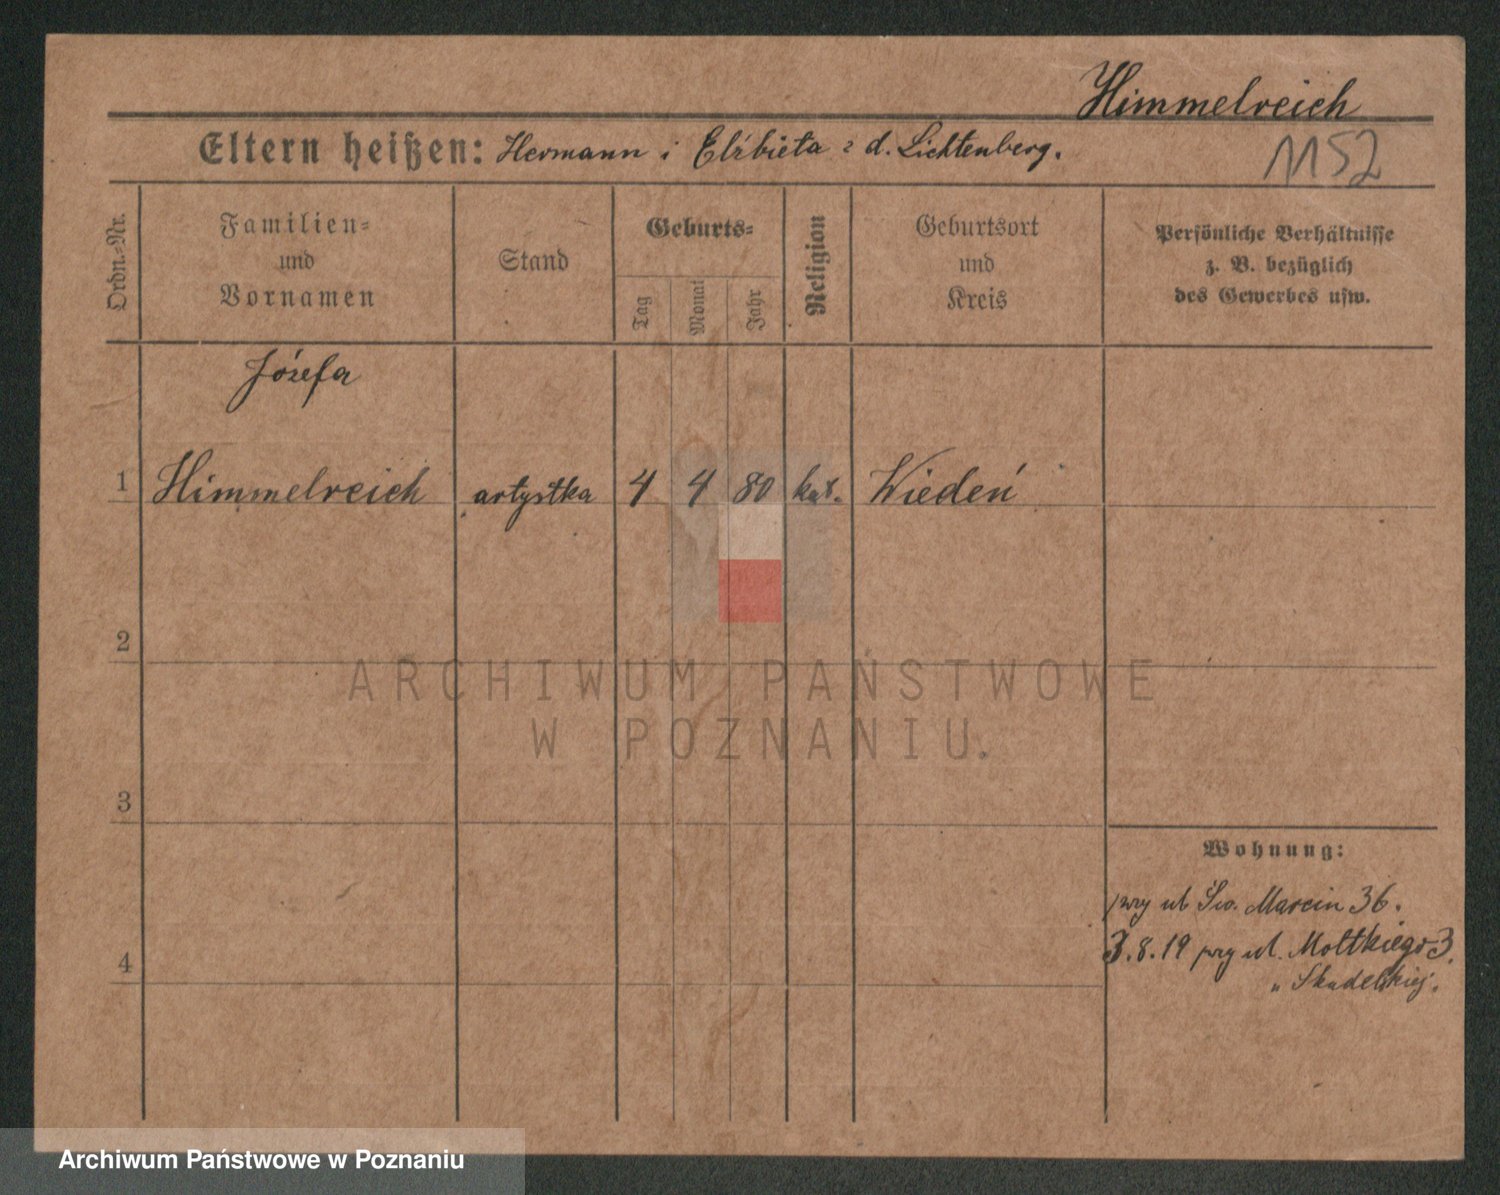 Himmelreich
Eltern heißen: Hermann i Elżbieta z d. Lichtenberg.
1152
Ordn.-Nr.
Familien-
und
Vornamen
Stand
Geburts-
Tag
Monat
Jahr
Religion
Geburtsort
und
Kreis
Persönliche Verhältnisse
z. B. bezüglich
des Gewerbes usw.
Józefa
1 Himmelreich artystka 4 4 80 kat. Wiedeń
2
ARCHIWUM PAŃSTWOWE
W POZNANIU.
3
Wohnung:
przy ul Św. Marcin 36.
4
3.8.19 przy ul. Moltkiego 3.
„
Archiwum Państwowe w Poznaniu